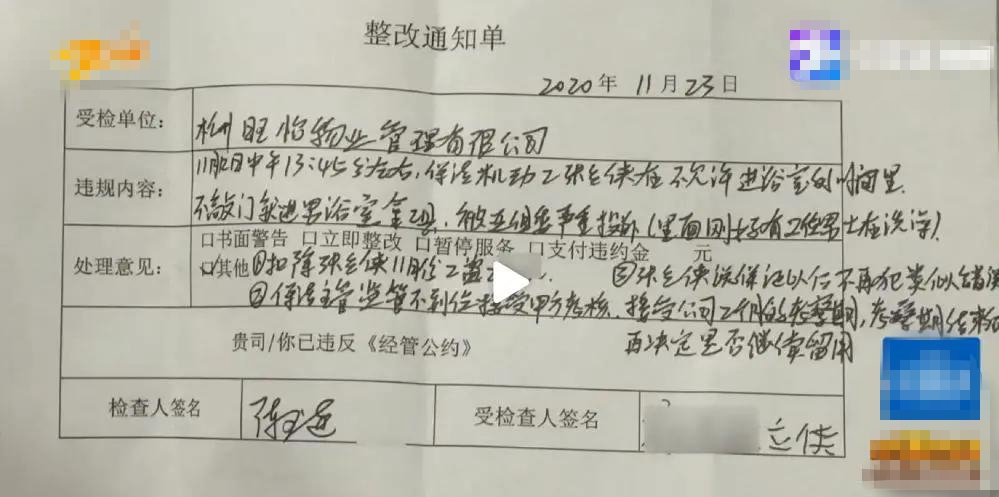 整改通知单
2020年 11月23日
受检单位: 杭州旺怡物业管理有限公司
违规内容: 中午13:45分左右,保洁机动工张立侠在不允许进浴室的时间里
不敲门就进男浴室拿工具,被严重投诉(里面刚好有2位男士在洗澡)
处理意见: □书面警告 □立即整改 □暂停服务 □支付违约金 元
□其他 ①扣除张立侠11月份工 ③张立侠须保证以后不再犯类似错误
②保洁主管监管不到位接受甲方考核、接受公司2个月的考察期,考察期结束后
再决定是否继续留用
贵司/你已违反《经管公约》
检查人签名 受检查人签名 立侠